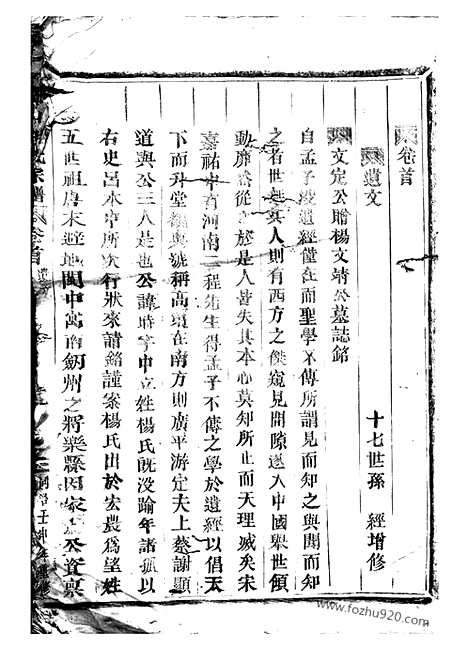 卷首
遺文
十七世孫 經增修
文定公贈楊文靖公墓誌銘
自孟子没遺經僅在而聖學不傳所謂見而知之與聞而知
之者世無其人則有西方之傑窺見間隙遂入中國舉世傾
動靡然從於是人皆失其本心莫知所止而天理滅矣宋
嘉祐中有河南二程先生得孟子不傳之學於遺經以倡天
下而升堂覩奥號稱高在南方則廣平游定夫上蔡謝顯
道與公三人是也公諱時字中立姓楊氏既没踰年諸孤以
右史呂本中所次行狀來請銘謹案楊氏出於宏農爲望姓
五世祖唐末避地閩中寓南劒州之將樂縣因家焉公資禀
宗譜 卷首
www.fozhu920.com